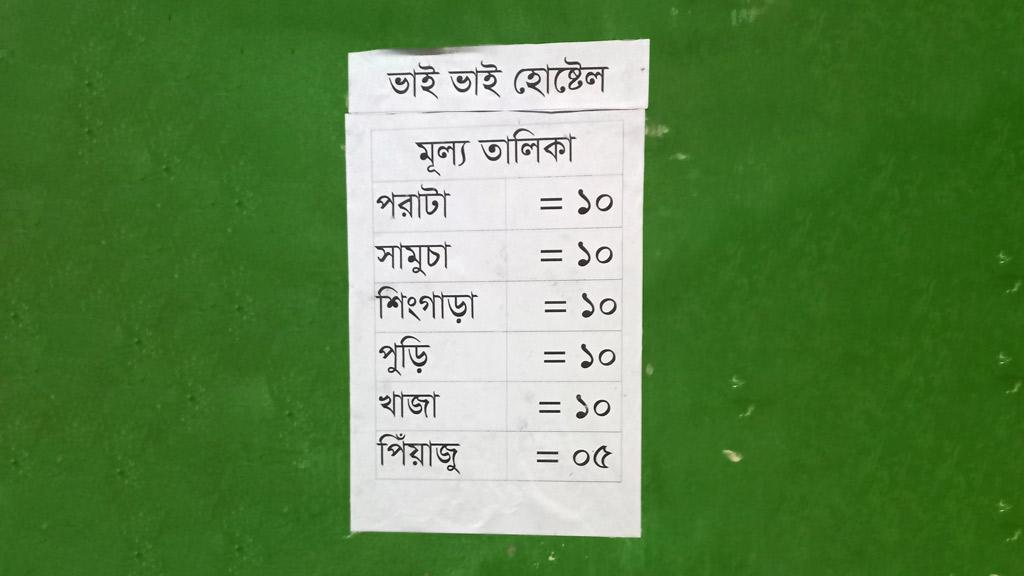 ভাই ভাই হোষ্টেল
মূল্য তালিকা
পরাটা = ১০
সামুচা = ১০
শিংগাড়া = ১০
পুড়ি = ১০
খাজা = ১০
পিঁয়াজু = ০৫